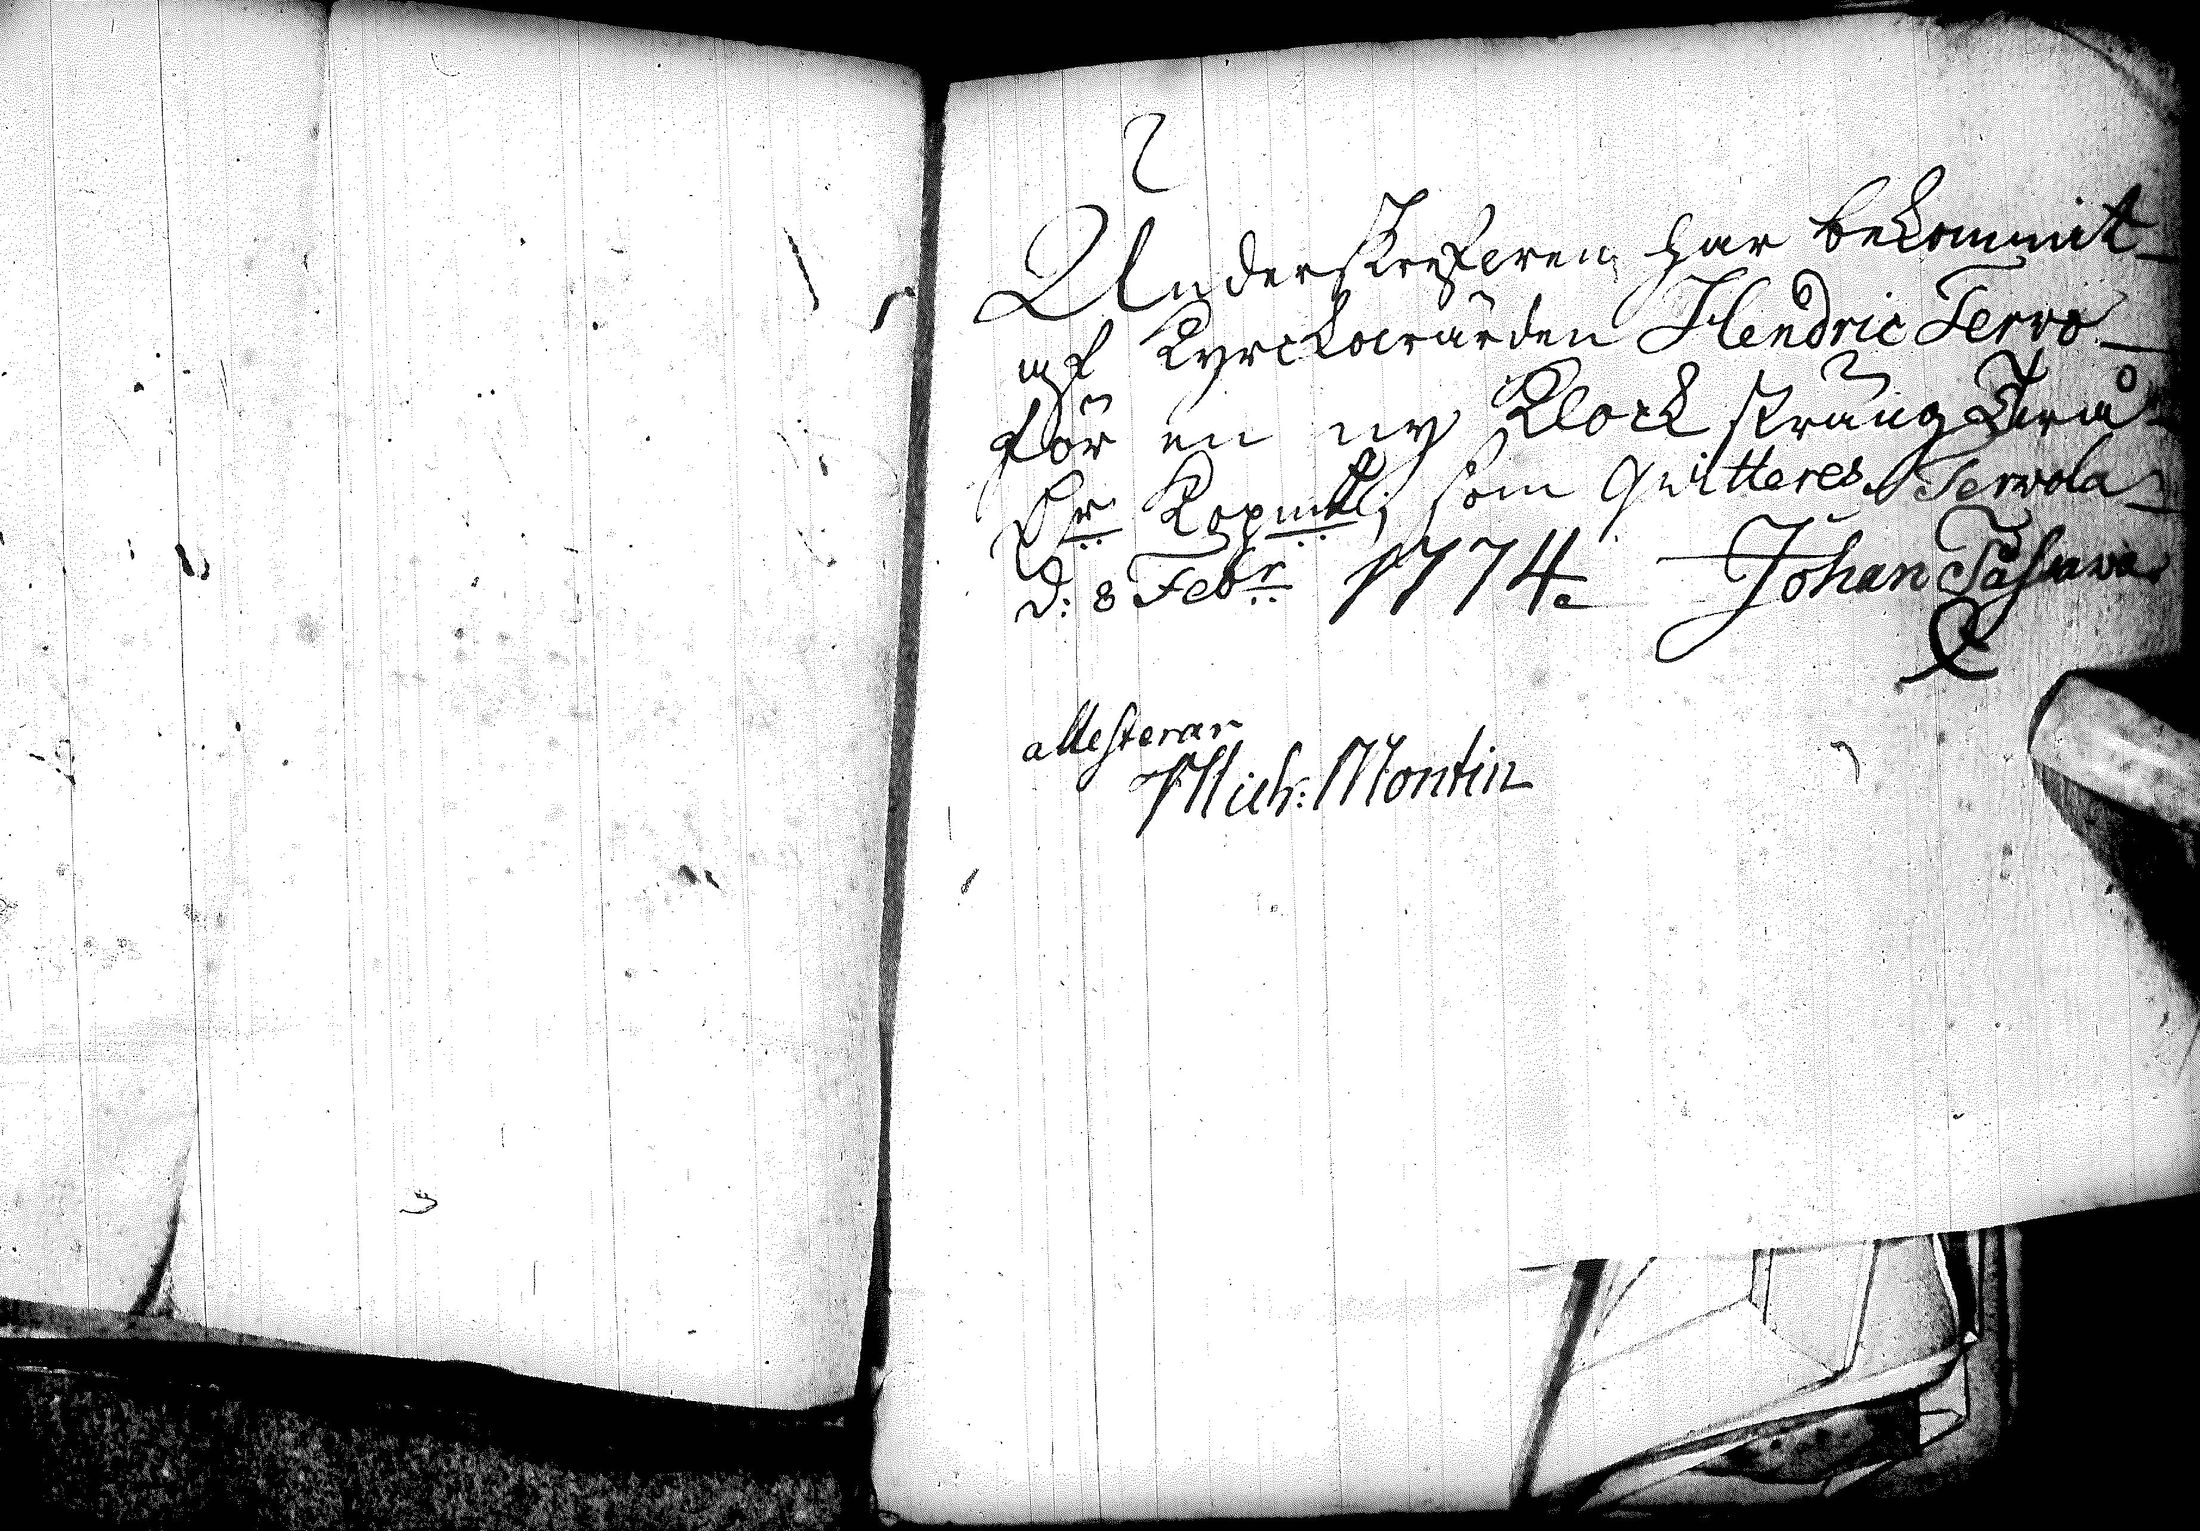 Underskrefveren har bekommit
af Kyrckowärden Hendric Tervo
för en ny Klock sträng Twå
Dr Kopmt, som qvitteres. Tervola
d: 8 Febr 1774. Johan
attesterar
Mich: Montin